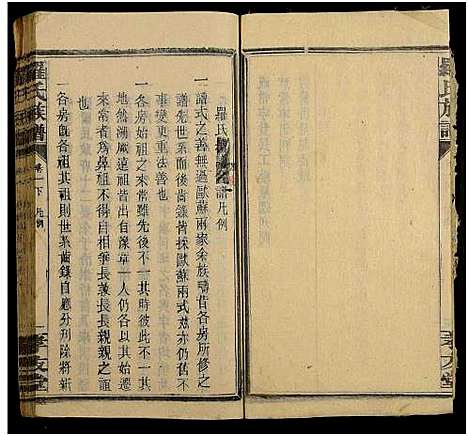 羅氏族譜
孝友堂
羅氏族譜凡例
一譜式之善無過歐蘇兩家余族疇昔各房所修之
譜先世系而後齒錄皆採歐蘇兩式茲亦仍舊不
變更重法善也
一各房始祖來常雖先後不一時彼此不一
地然溯厥遠祖皆出自豫章一人仍各以其
始來常者爲鼻祖不得自相爭長兼長長親親之誼
一各房旣各祖其祖則世系齒錄自應分刊除將新
羅氏族譜
卷一下 凡例
孝友堂